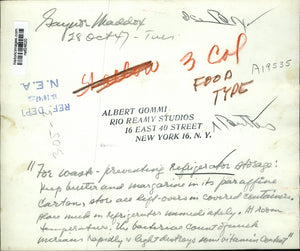 Gaynor Maddox
28 Oct 47 - Tues
3 Col
FOOD
TYPE
A19535
REF. DEPT
N.E.A.
ALBERT GOMMI
RIO REAMY STUDIOS
16 EAST 40 STREET
NEW YORK 16, N. Y.
305
"For waste-preventing Refrigerator Storage:
Keep butter and margarine in its paraffine
carton, store all left-overs in covered containers,
place milk in refrigerator immediately. At room
temperature, the bacteria count of milk
increases rapidly & light destroys some vitamin content"